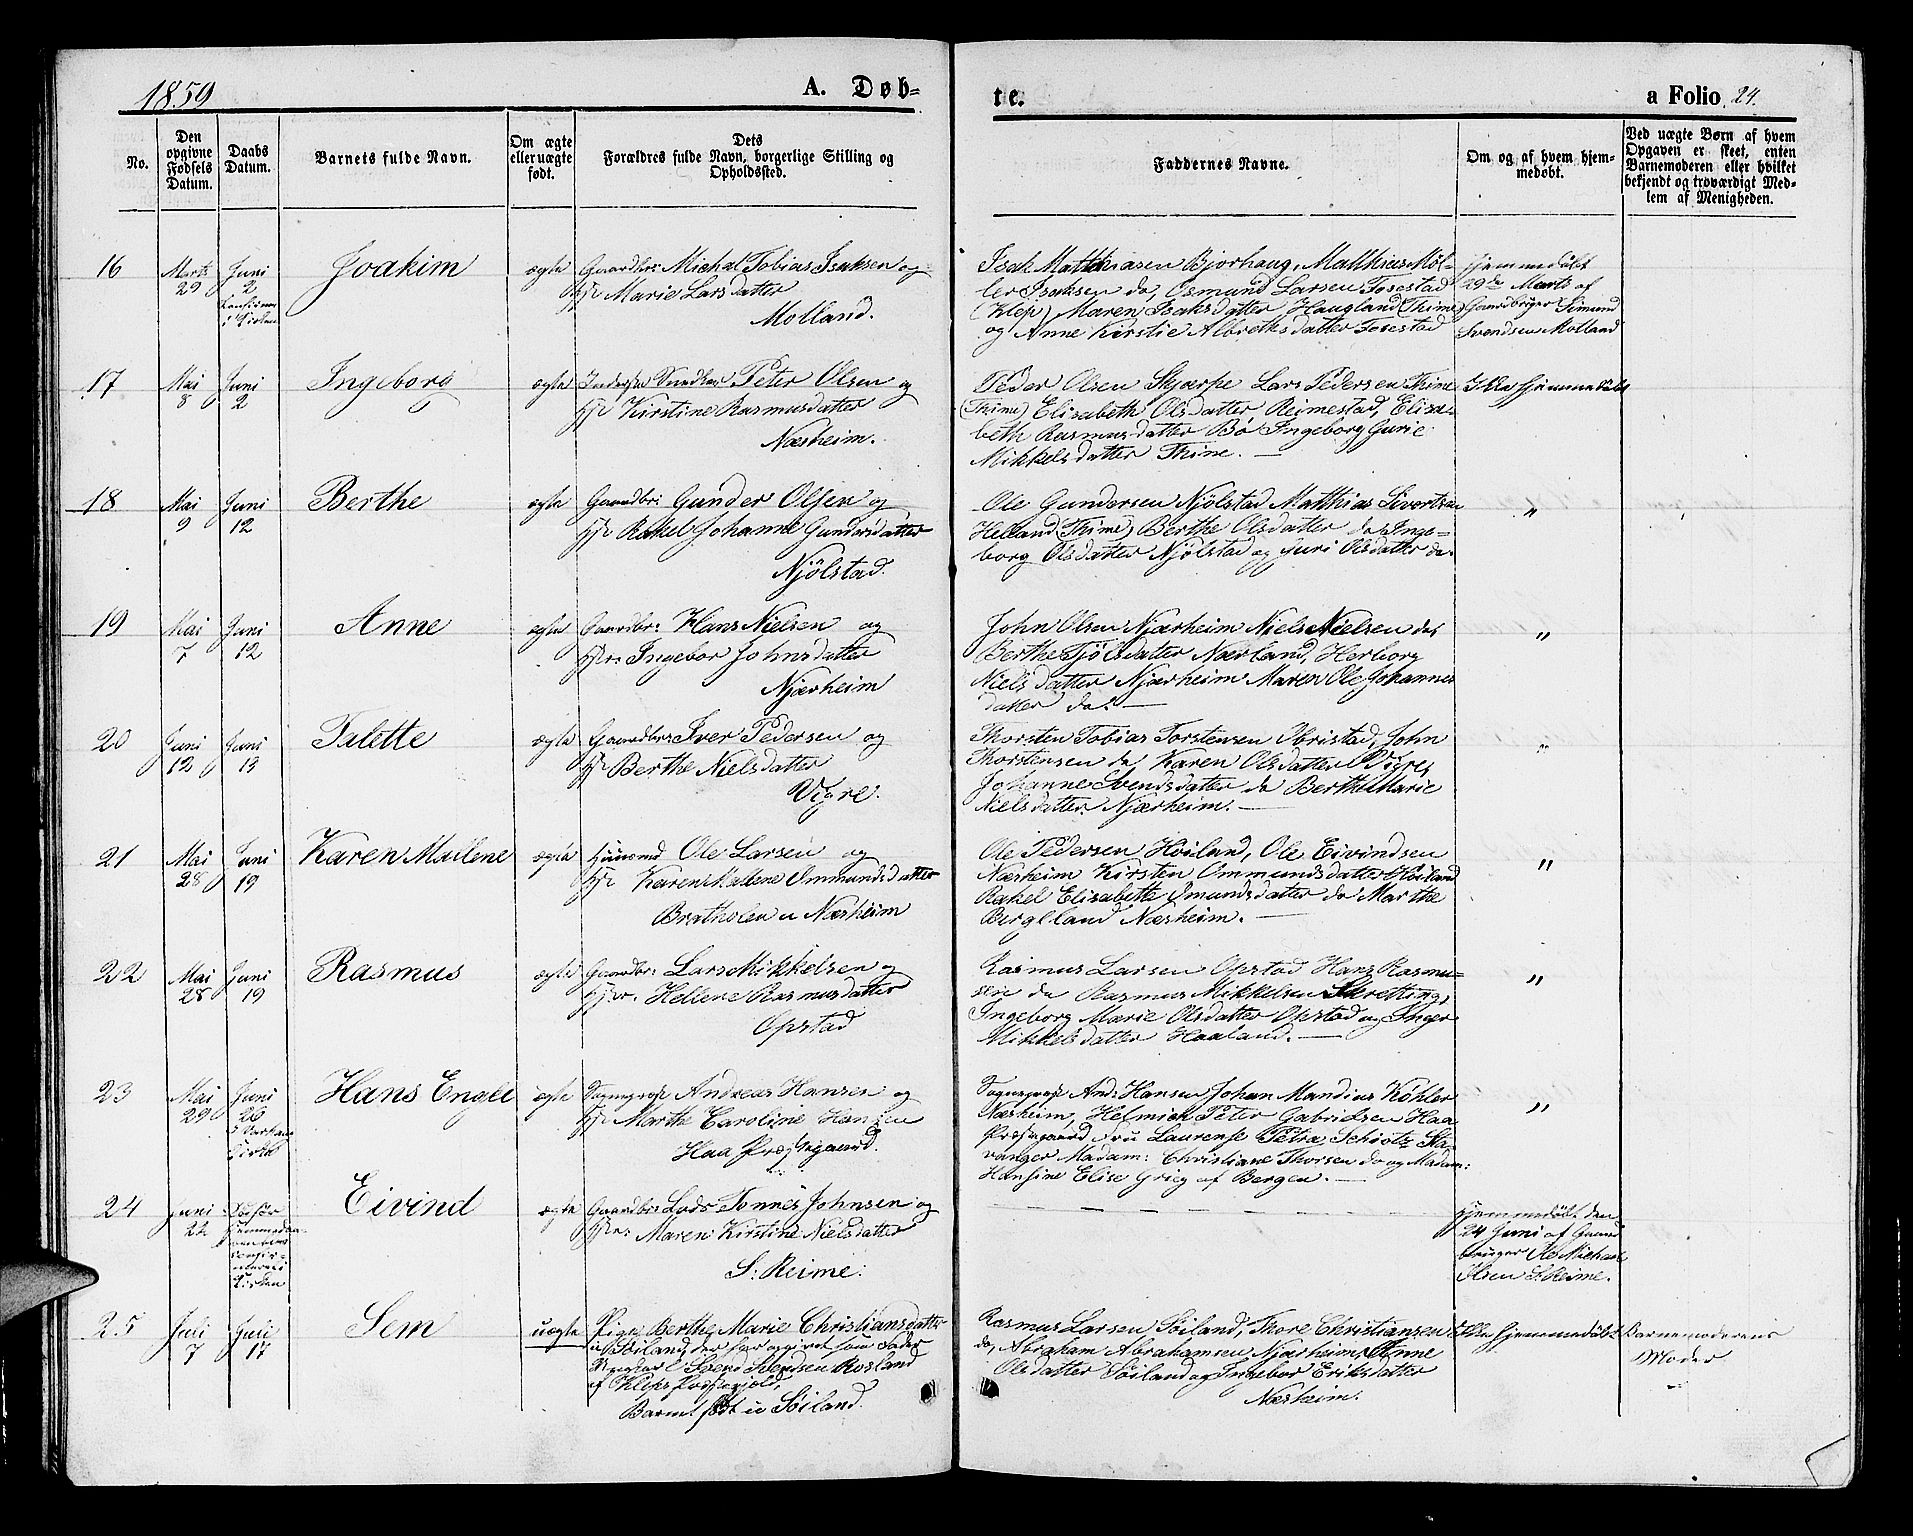 1859
A. Døb-
te.
a Folio 24.
No.
Den opgivne Fødsels Datum.
Daabs Datum.
Barnets fulde Navn.
Om ægte eller uægte født.
Dets Forældres fulde Navn, borgerlige Stilling og Opholdssted.
Faddernes Navne.
Om og af hvem hjem-
medøbt.
Ved uægte Børn af hvem
Opgaven er skeet, enten
Barnemoderen eller hvilket
bekjendt og troværdigt Med-
lem af Menigheden.
16 Marts 29 Juni 2 i Kirken Joakim ægte
Gaardbr: Michal Tobias Isaksen og
Hr Marie Larsdatter
Molland.
Isak Matthiasen Bjorhaug, Matthias Møl-
ler Isaksen do, Osmund Larsen Tosestad
(Klep) Maren Isaksdatter Haugland (Thime)
og Anne Kirstie Albrethsdatter Tosestad
Hjemmedøbt
29de Marts af
Gaardbruger Simund
Svendsen Molland
17 Mai 8 Juni 2 Ingeborg ægte
Peter Olsen og
Hr Kirstine Rasmusdatter
Nærheim.
Peder Olsen Skjærpe Lars Pedersen Thime
(Thime) Elisabeth Olsdatter Reimestad, Elisa-
beth Rasmusdatter Bø Ingeborg Gurie
Mikkelsdatter Thime. —
Ikke hjemmedøbt
18 Mai 9 Juni 12 Berthe ægte
Gaardbr: Gunder Olsen og
Hr Rakel Johanne Gundersdatter
Njølstad.
Ole Gundersen Njølstad Matthias Sivertsen
Helland (Thime) Berthe Olsdatter do Inge-
borg Olsdatter Njølstad og Juri Olsdatter do.
"
19 Mai 7 Juni 12 Anne ægte
Gaardbr: Hans Nielsen og
Hr: Ingebor Johnsdatter
Njærheim
John Olsen Njærheim Niels Nielsen do,
Berthe Tjølsdatter Nærland, Herborg
Nielsdatter Njærheim Maren Ole Johannes
datter do. —
"
20 Juni 12 Juni 13 Talette ægte
Gaardbr: Iver Pedersen og
Hr Berthe Nielsdatter
Vigre.
Thorsten Tobias Torstensen Obristad, John
Thorstensen do Karen Olsdatter Vigre,
Johanne Svendsdatter do Berthe Marie
Nielsdatter Njærheim. —
"
21 Mai 28 Juni 19 Karen Mailene ægte
Huusmd Ole Larsen og
Hr Karen Malene Ommundsdatter
Bratholen u Nærheim
Ole Pedersen Høiland, Ole Eivindsen
Nærheim Kirsten Ommundsdatter Høiland
Rakel Elisabette Omundsdatter do Marthe
Bergland Nærheim. —
"
22 Mai 28 Juni 19 Rasmus ægte
Gaardbr: Lars Mikkelsen og
Hr. Hellene Rasmusdatter
Opstad
Rasmus Larsen Opstad Hans Rasmu-
sen do Rasmus Mikkelsen Skretting,
Ingeborg Marie Olsdatter Opstad og Inger
Mikkelsdatter Haaland. —
"
23 Mai 29 Juni 26 i Varhaug Kirke Hans Engel ægte
Sogneprest Andreas Hansen og
Hr Marthe Caroline Hansen
Haa Præstegaard.
Sogneprest And: Hansen Johan Mandius Køhler
Nærheim, Helmich Peter Gabrielsen Haa
Præstegaard Fru Laurense Petra Schiøtz Sta-
vanger Madam: Christiane Thorsen do og Madam:
Hansine Elise Grieg af Bergen. —
"
24 Juni 22 Kirken Eivind ægte
Gaardbr: Tønnes Johnsen og
Hr: Maren Kirstine Nielsdatter
S: Reime:
— — — — — — — —
Hjemmedøbt den
24 Juni af Gaard
bruger Ole Michael
Olsen S: Reime.
25 Juli 7 Juli 17 Sem uægte
Pige Berthe Marie Christiansdatter
Søiland, der har opgivet som Fader
Svend Svendsen Rosland
af Kleps Præstegjeld,
Barnet født u Søiland.
Rasmus Larsen Søiland, Thore Christiansen
do, Abraham Abrahamsen Njærheim, Anne
Olsdatter Søiland og Ingebor Eriksdatter
Nærheim.
Ikke hjemmedøbt
Barnemoderens
Moder